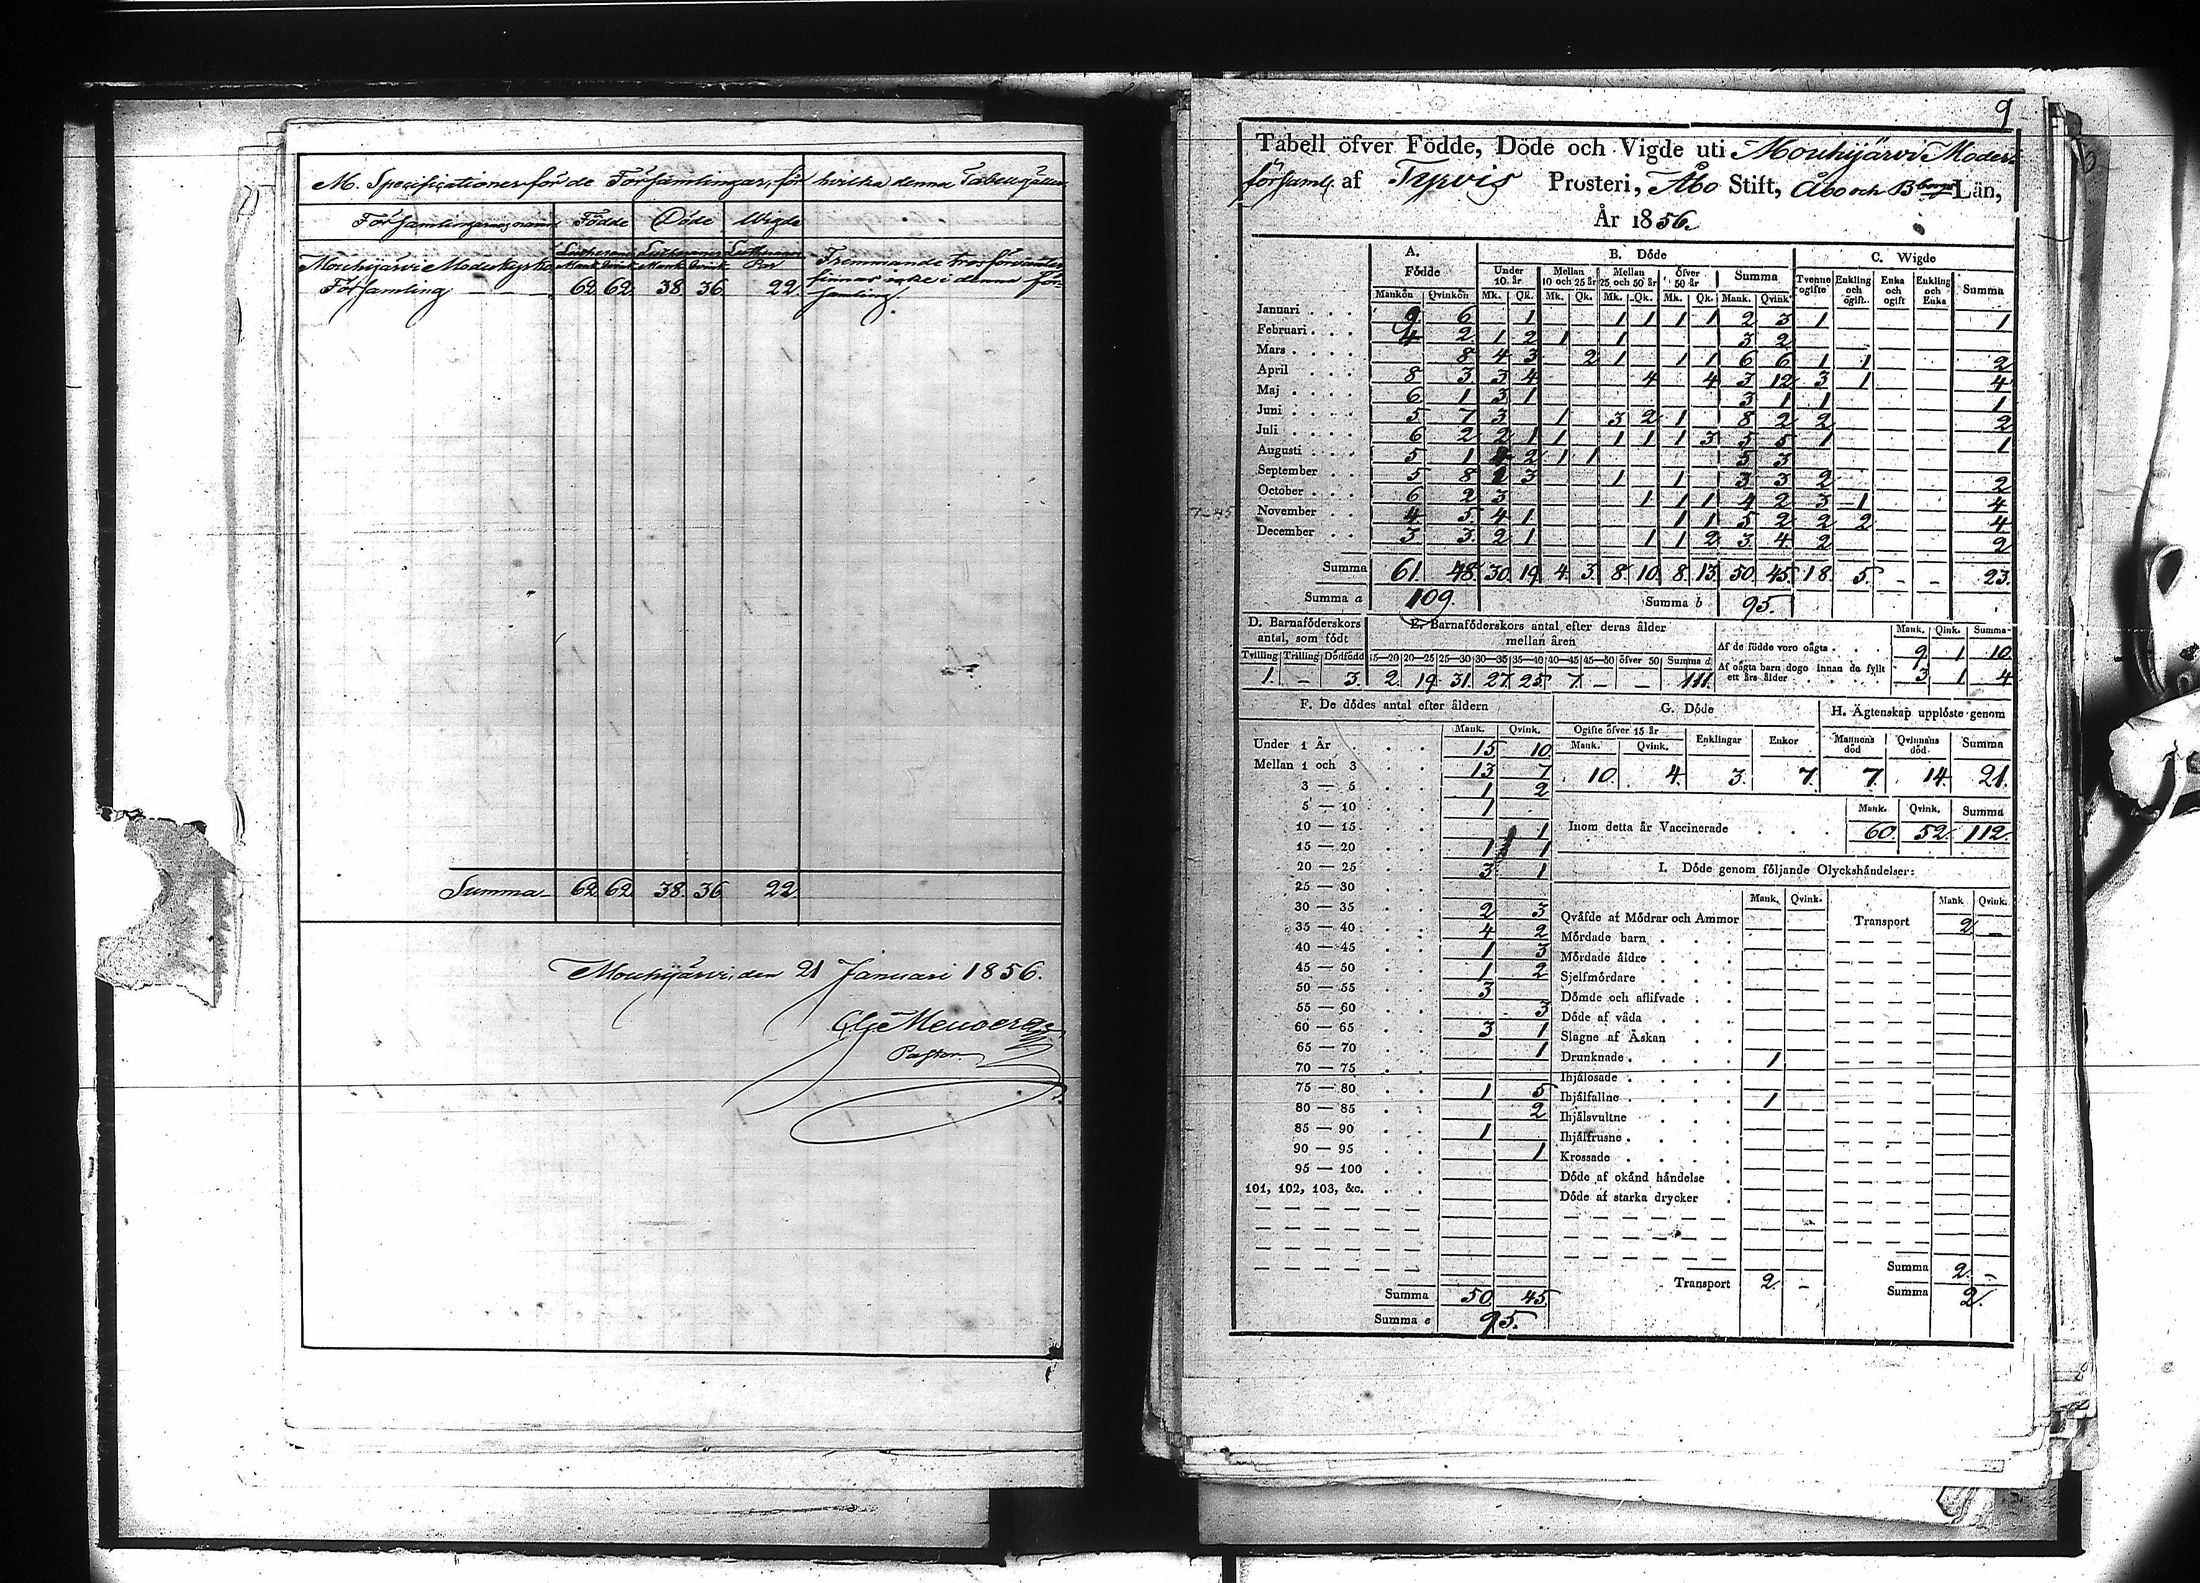 M. Specificationer för de Församlingar, för hvilka denna Tabell gäller
Församlingarnas namn Födde Döde Wigde
Mouhijärvi Moderkyrko Mank. Qvink. Mank. Qvink. Par Fremmande trosförvandter
Församling — — 62 62 38 36 22. finnas icke i denna för-
samling.
Summa 62 62 38 36 22.
Mouhijärvi, den 21 Januari 1856.
Pastor
9
Tabell öfver Födde, Döde och Vigde uti Mouhijärvi Moder-
församl. af Tyrvis Prosteri, Åbo Stift, Åbo och Bborgs Län,
År 1856.
A. Födde B. Döde C. Wigde
Under 10 år Mellan 10 och 25 år Mellan 25 och 50 år öfver 50 år Summa Tvenne ogifte Enkling och ogift. Enka och ogift Enkling och Enka Summa
Mankön Qvinkön Mk. Qk. Mk. Qk. Mk. Qk. Mk. Qk. Mank. Qvink
Januari . . . 9 6 1 1 1 1 1 2 3 1 1
Februari . . . 4 2 1 2 1 1 3 2
Mars . . . . 8 4 3 2 1 1 1 6 6 1 1 2
April . . . 8 3 3 4 4 4 3 12 3 1 4
Maj . . . . 6 1 3 1 3 1 1 1
Juni . . . . 5 7 3 1 3 2 1 8 2 2 2
Juli . . . . 6 2 2 1 1 1 1 1 3 5 5 1 1
Augusti . . . 5 1 4 2 1 1 5 3
September . . 5 8 2 3 1 1 3 3 2 2
October . . . 6 2 3 1 1 1 4 2 3 1 4
November . . 4 5 4 1 1 1 5 2 2 2 4
December . . 3 3 2 1 1 1 2 3 4 2 2
Summa 61 48 30 19 4 3 8 10 8 13 50 45 18 5 - - 23.
Summa a 109. Summa b 95.
D. Barnaföderskors antal, som födt
E. Barnaföderskors antal efter deras ålder mellan åren
Tvilling Trilling Dödfödd 15—20 20—25 25—30 30—35 35—40 40—45 45—50 öfver 50 Summa d
1. — 3. 2. 19 31. 27 25. 7. — — 111.
Mank. Qink. Summa
Af de födde voro oägta . . . 9 1 10
Af oägta barn dogo innan de fyllt ett års ålder . . . . . 3 1 4
F. De dödes antal efter åldern
Mank. Qvink.
Under 1 År . . . 15 10
Mellan 1 och 3 . . 13 7
3 — 5 . . 1 2
5 — 10 . . 1
10 — 15 . . 1
15 — 20 . . 1 1
20 — 25 . . 3 1
25 — 30
30 — 35 . . 2 3
35 — 40 . . 4 2
40 — 45 . . 1 3
45 — 50 . . 1 2
50 — 55 . . 3
55 — 60 . . 3
60 — 65 . . 3 1
65 — 70 . . 1
70 — 75 . .
75 — 80 . . 1 5
80 — 85 . . 2
85 — 90 . . 1
90 — 95 . . 1
95 — 100 . .
101, 102, 103, &c. . .
Summa 50 45
Summa e 95.
G. Döde
Ogifte öfver 15 år Enklingar Enkor
Mank. Qvink.
10. 4. 3. 7.
H. Ägtenskap upplöste genom
Mannens död Qvinnans död Summa
7. 14. 21.
Mank. Qvink. Summa
Inom detta år Vaccinerade . . . . 60. 52. 112.
I. Döde genom följande Olyckshändelser:
Mank. Qvink. Mank Qvink.
Qväfde af Mödrar och Ammor Transport 2 —
Mördade barn . . .
Mördade äldre . . .
Sjelfmördare . . .
Dömde och aflifvade . .
Döde af våda . . .
Slagne af Åskan . .
Drunknade . . . . 1
Ihjälosade . . . .
Ihjälfallne . . . . 1
Ihjälsvultne . . .
Ihjälfrusne . . . .
Krossade . . . .
Döde af okänd händelse .
Döde af starka drycker .
Transport 2 — Summa 2. —
Summa 2.